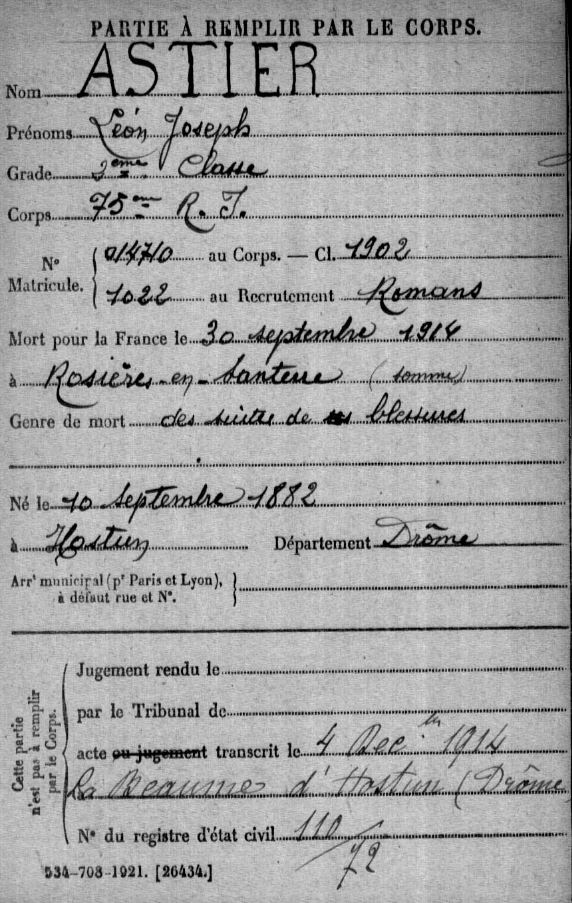 PARTIE À REMPLIR PAR LE CORPS.
Nom ASTIER
Prénoms Léon Joseph
Grade 2ème Classe
Corps 75me R. I.
N° Matricule. 014710 au Corps. — Cl. 1902
1022 au Recrutement Romans
Mort pour la France le 30 septembre 1914
à Rosières-en-Santerre (Somme)
Genre de mort des suites de blessures
Né le 10 Septembre 1882
à Hostun Département Drôme
Arrt municipal (pr Paris et Lyon), à défaut rue et N°.
Cette partie n'est pas à remplir par le Corps.
Jugement rendu le
par le Tribunal de
acte ou jugement transcrit le 4 Dec 1914
La Beaume d'Hostun (Drôme
N° du registre d'état civil 110/72
534-708-1921. [26434.]